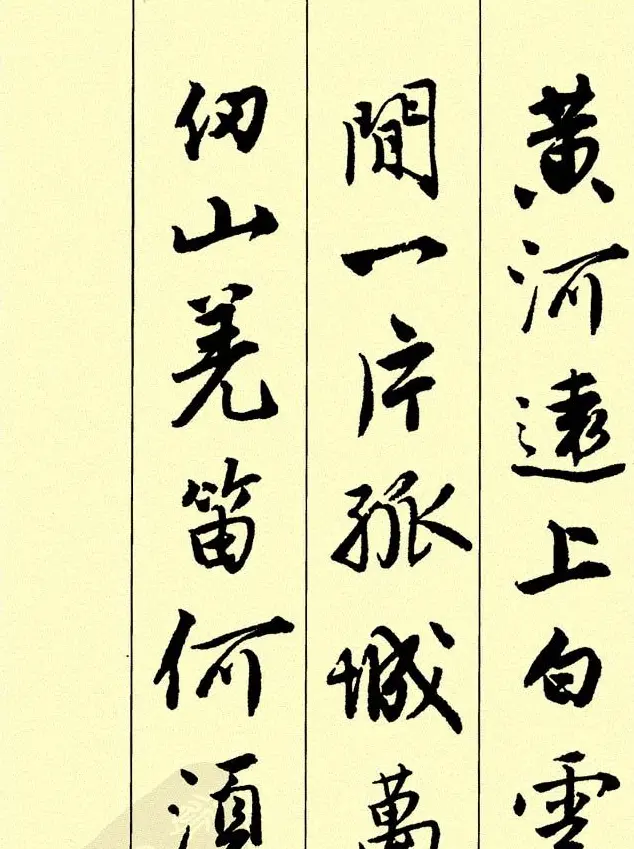 黃河遠上白雲
間一片孤城萬
仞山羌笛何須